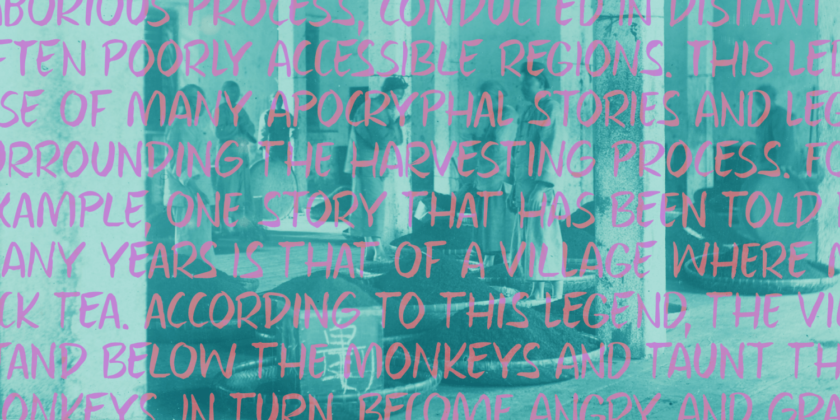 ABORIOUS PROCESS, CONDUCTED IN DISTANT
FTEN POORLY ACCESSIBLE REGIONS. THIS LED
SE OF MANY APOCRYPHAL STORIES AND LEG
ORROUNDING THE HARVESTING PROCESS. FO
XAMPLE, ONE STORY THAT HAS BEEN TOLD
ANY YEARS IS THAT OF A VILLAGE WHERE M
CK TEA. ACCORDING TO THIS LEGEND, THE VIL
TAND BELOW THE MONKEYS AND TAUNT TH
ONKEYS, IN TURN, BECOME ANGRY AND GR